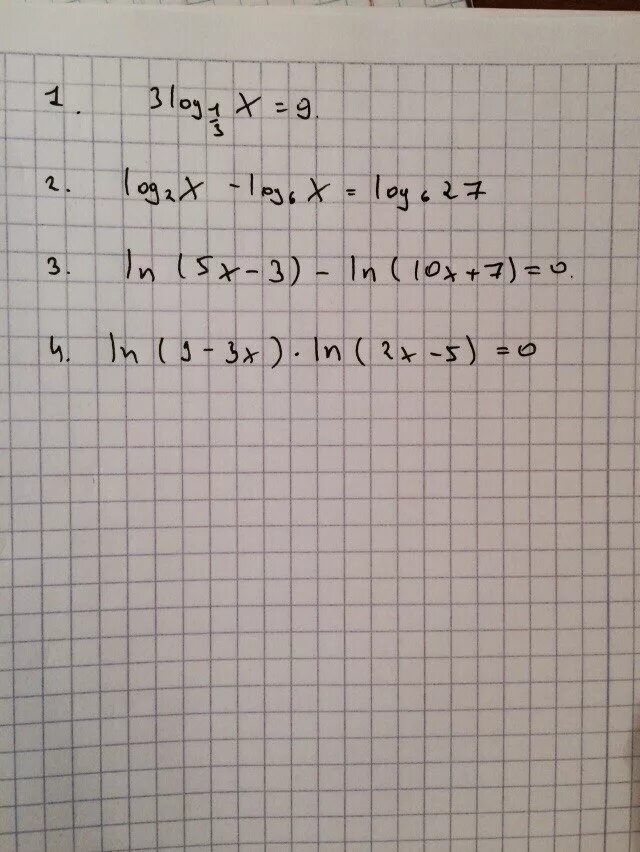 1. 3log_{1/3} x = 9.
2. log₂x - log₆x = log₆27
3. ln (5x - 3) - ln (10x + 7) = 0.
4. ln (9 - 3x) · ln (2x - 5) = 0